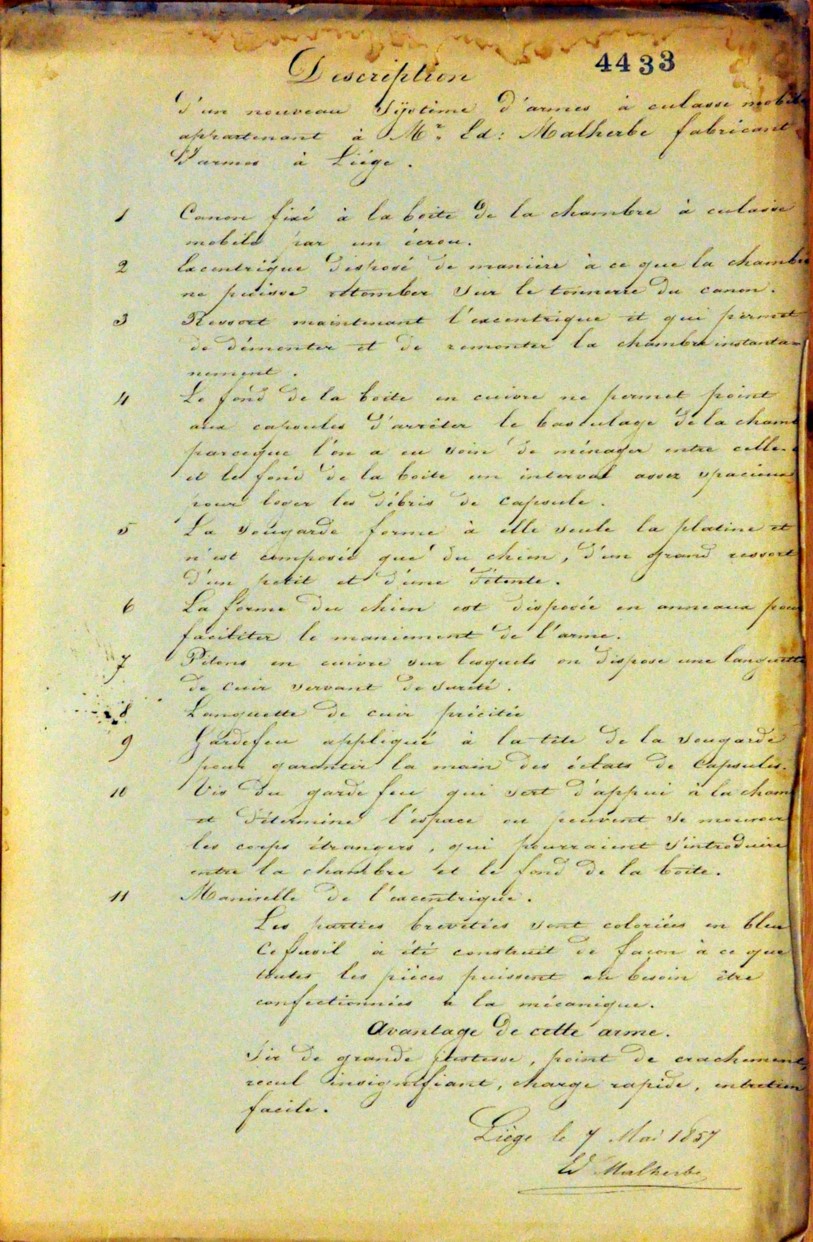 4433
Description
d'un nouveau système d'armes à culasse mobile
appartenant à Mr. Ed: Malherbe fabricant
d'armes à Liége.
1 Canon fixé à la boite de la chambre à culasse
mobile par un écrou.
2 Excentrique disposé de manière à ce que la chambre
ne puisse retomber sur le tonnerre du canon.
3 Ressort maintenant l'excentrique et qui permet
de démonter et de remonter la chambre instanta-
nement.
4 Le fond de la boite en cuivre ne permet point
aux capsules d'arrêter le basculage de la cham
parceque l'on a eu soin de ménager entre celle-
et le fond de la boite un interval assez spacieux
pour loger les débris de capsule.
5 La sougarde forme à elle seule la platine et
n'est composée que du chien, d'un grand ressort
d'un petit et d'une détente.
6 La forme du chien est disposée en anneaux pour
faciliter le maniement de l'arme.
7 Pitons en cuivre sur lesquels on dispose une languette
de cuir servant de sureté.
8 Languette de cuir précitée
9 Gardefeu appliqué à la tête de la sougarde
pour garantir la main des éclats de capsules.
10 Vis du garde feu qui sert d'appui à la cham
et détermine l'espace ou peuvent se mouvoir
les corps étrangers, qui pourraient s'introduire
entre la chambre et le fond de la boite.
11 Manivelle de l'excentrique.
Les parties brevetées sont coloriées en bleu
Ce fusil à été construit de façon à ce que
toutes les pièces puissent au besoin être
confectionnées à la mécanique.
Avantage de cette arme.
Tir de grande justesse, point de crachement,
recul insignifiant, charge rapide, entretien
facile.
Liége le 7 Mai 1857
Ed Malherbe